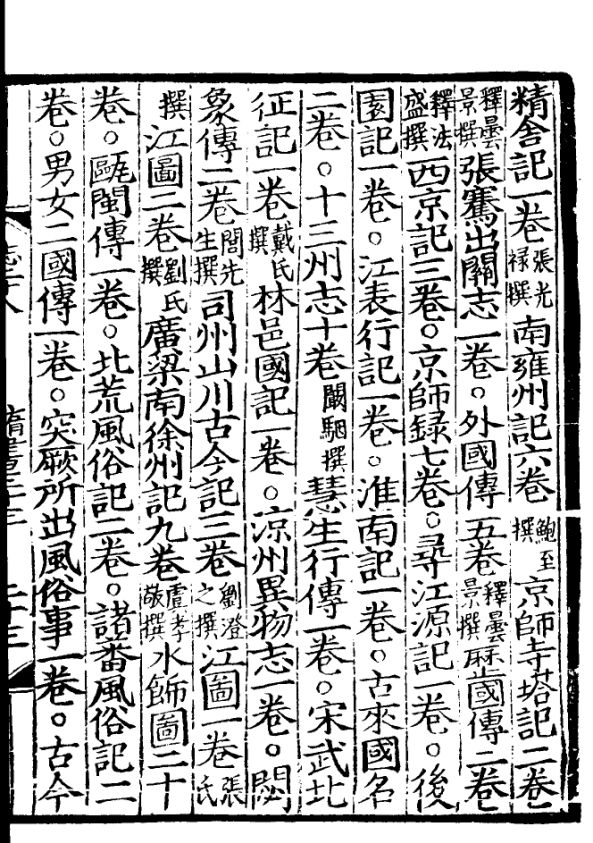 精舍記一卷張光祿撰南雍州記六卷鮑至撰京師寺塔記二卷
釋曇景撰張騫出關志一卷。外國傳五卷釋曇景撰歷國傳二卷
釋法盛撰西京記三卷。京師録七卷。尋江源記一卷。後
園記一卷。江表行記一卷。淮南記一卷。古來國名
二卷。十三州志十卷闞駰撰慧生行傳一卷。宋武北
征記一卷戴氏撰林邑國記一卷。涼州異物志一卷。閟
象傳二卷閭先生撰司州山川古今記三卷劉澄之撰江圖一卷張氏
撰江圖二卷劉氏撰廣梁南徐州記九卷虞孝敬撰水飾圖二十
卷。甌閩傳一卷。北荒風俗記二卷。諸番風俗記二
卷。男女二國傳一卷。突厥所出風俗事一卷。古今